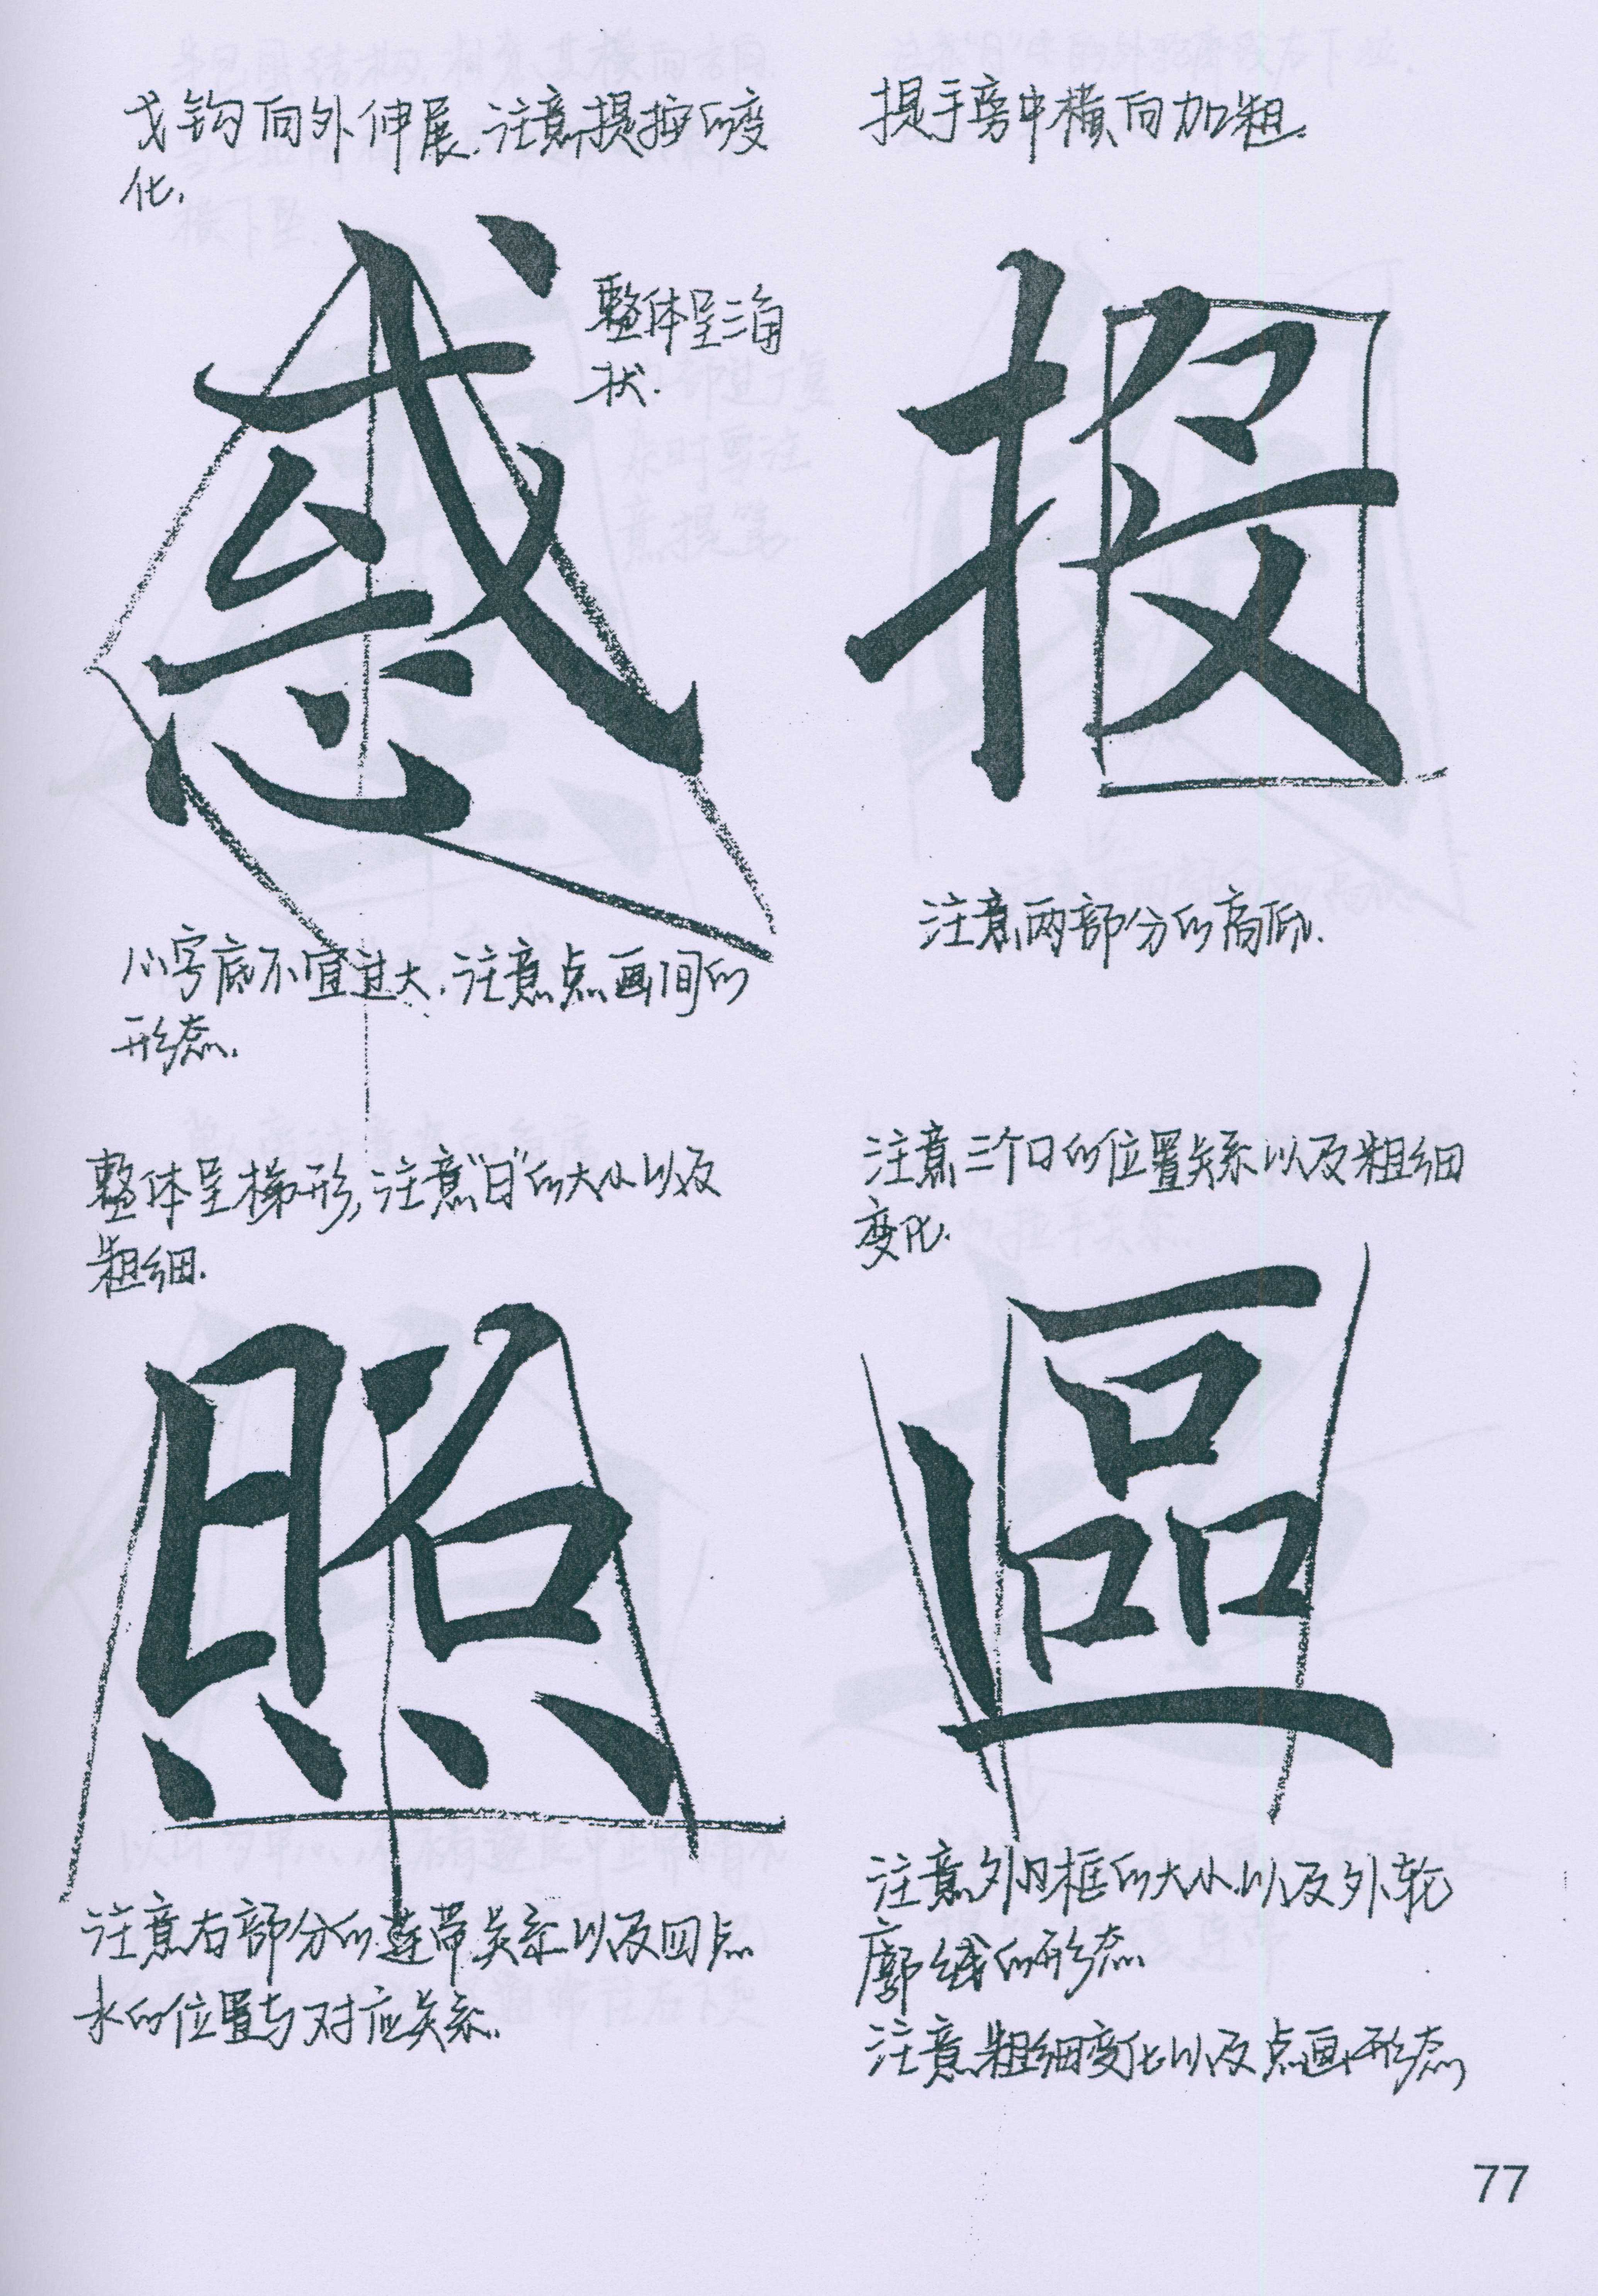 戈钩向外伸展.注意提按的变
化.
感
整体呈三角
状.
心字底不宜过大.注意点画间的
形态.
提手旁中横向加粗.
投
注意两部分的高低.
整体呈梯形,注意"日"的大小以及
粗细.
照
注意右部分的连带关系以及四点
水的位置与对应关系.
注意三个口的位置关系以及粗细
变化.
區
注意外口框的大小以及外轮
廓线的形态.
注意粗细变化以及点画形态
77